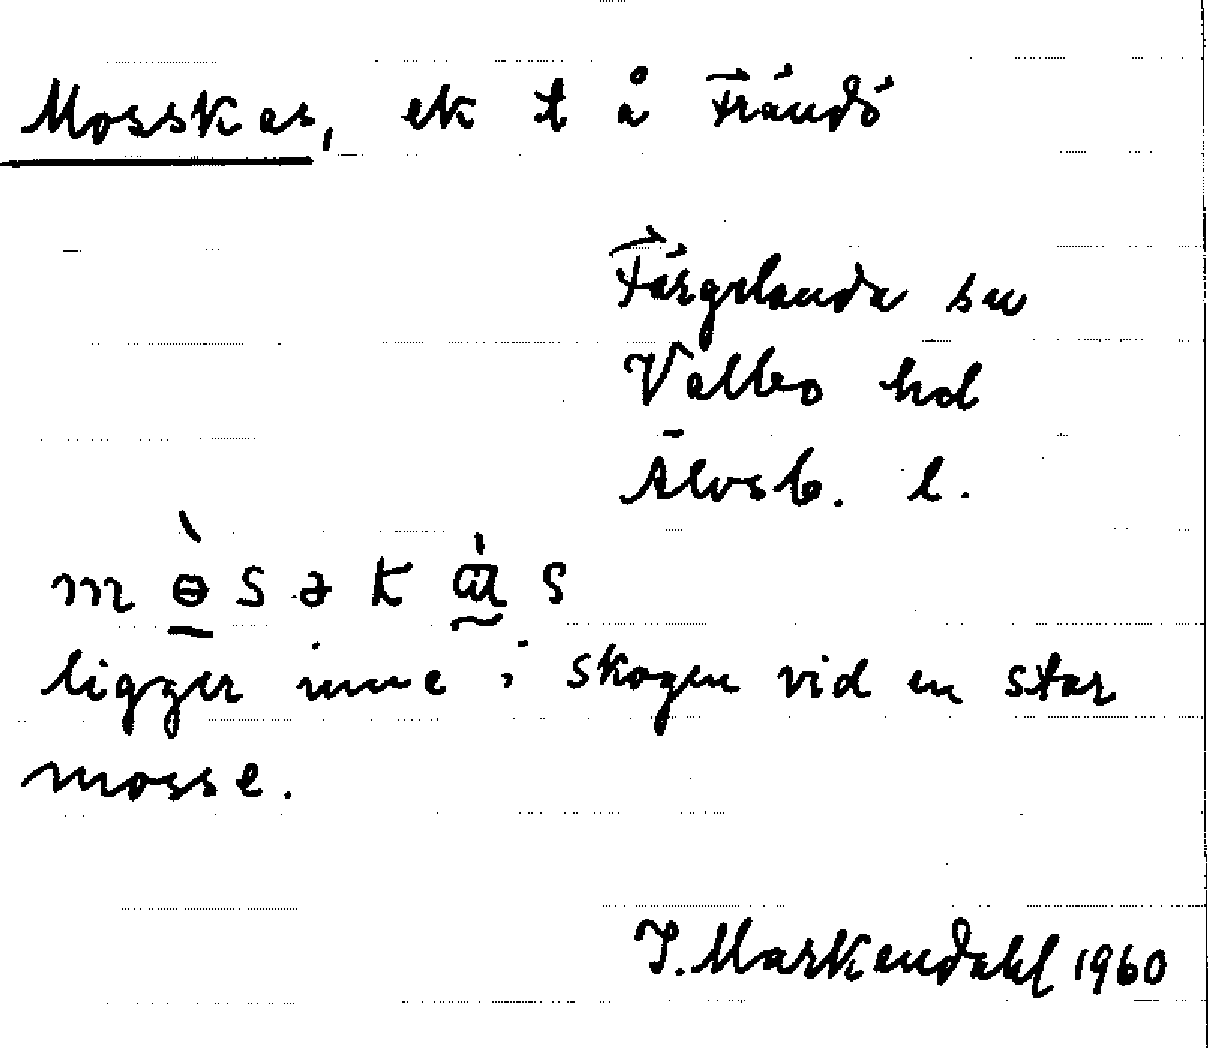 Mosskas, ek t å Frändö
Färgelanda sn
Valbo hd
Älvsb. l.
ligger inne i skogen vid en stor
mosse.
J. Markendahl 1960